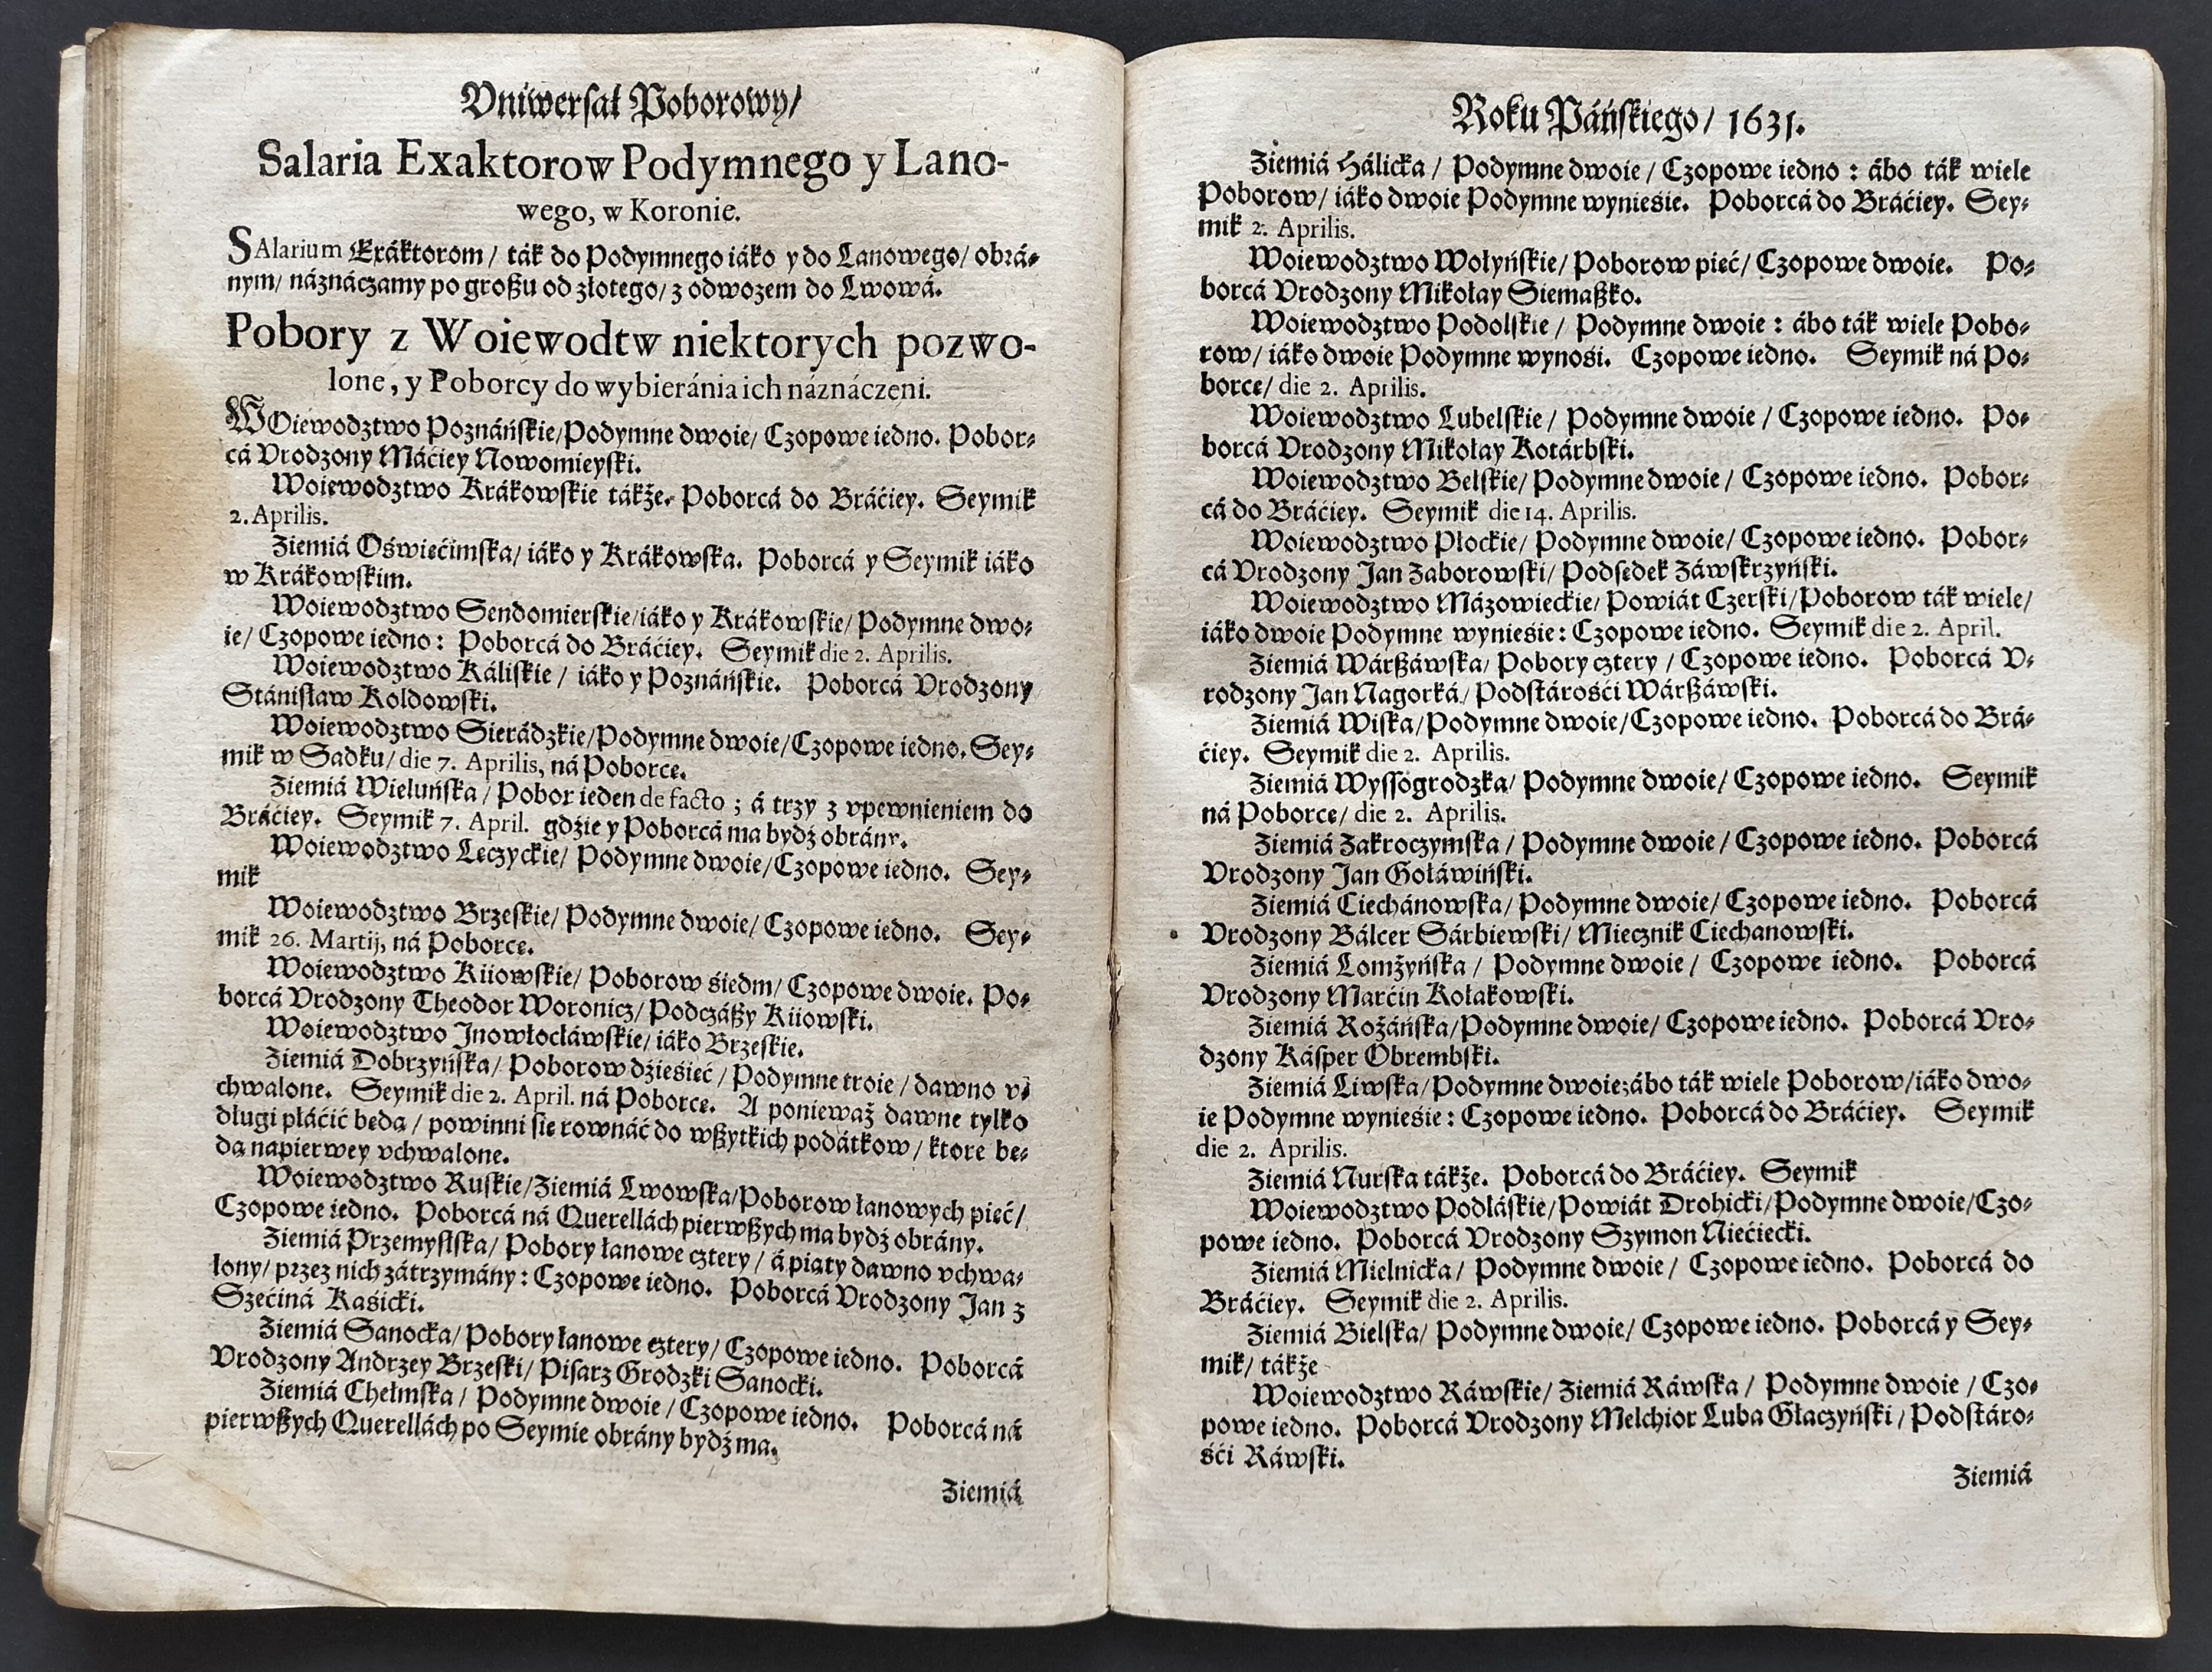 Vniwersał Poborowy/
Salaria Exaktorow Podymnego y Lano-
wego, w Koronie.
SAlarium Exáktorom / ták do Podymnego iáko y do Lanowego/ obrá-
nym/ náznáczamy po großu od złotego/ z odwozem do Lwowá.
Pobory z Woiewodtw niektorych pozwo-
lone, y Poborcy do wybieránia ich náznáczeni.
WOiewodztwo Poznáńskie/Podymne dwoie/ Czopowe iedno. Pobor-
cá Vrodzony Máćiey Nowomieyski.
Woiewodztwo Krákowskie tákże. Poborcá do Bráćiey. Seymik
2. Aprilis.
Ziemiá Oświećimska/ iáko y Krákowska. Poborcá y Seymik iáko
w Krákowskim.
Woiewodztwo Sendomierskie/iáko y Krákowskie/ Podymne dwo-
ie/ Czopowe iedno: Poborcá do Bráćiey. Seymik die 2. Aprilis.
Woiewodztwo Káliskie / iáko y Poznáńskie. Poborcá Vrodzony
Stánisław Koldowski.
Woiewodztwo Sierádzkie/Podymne dwoie/Czopowe iedno. Sey-
mik w Sadku/ die 7. Aprilis, ná Poborce.
Ziemiá Wieluńska / Pobor ieden de facto ; á trzy z vpewnieniem do
Bráćiey. Seymik 7. April. gdźie y Poborcá ma bydź obrány.
Woiewodztwo Leczyckie/ Podymne dwoie/Czopowe iedno. Sey-
mik
Woiewodztwo Brzeskie/ Podymne dwoie/ Czopowe iedno. Sey-
mik 26. Martij, ná Poborce.
Woiewodztwo Kiiowskie/ Poborow śiedm/ Czopowe dwoie. Po-
borcá Vrodzony Theodor Woronicz/ Podczáßy Kiiowski.
Woiewodztwo Jnowłocłáwskie/ iáko Brzeskie.
Ziemiá Dobrzyńska/ Poborow dźieśieć / Podymne troie / dawno v-
chwalone. Seymik die 2. April. ná Poborce. A ponieważ dawne tylko
długi płáćić beda / powinni sie rownáć do wßytkich podátkow / ktore be-
da napierwey vchwalone.
Woiewodztwo Ruskie/Ziemiá Lwowska/Poborow łanowych pieć/
Czopowe iedno. Poborcá ná Querellách pierwßych ma bydź obrány.
Ziemiá Przemyślska/ Pobory łanowe cztery / á piąty dawno vchwa-
lony/ przez nich zátrzymány : Czopowe iedno. Poborcá Vrodzony Jan z
Szećiná Kaśicki.
Ziemiá Sanocka/ Pobory łanowe cztery/ Czopowe iedno. Poborcá
Vrodzony Andrzey Brzeski/ Pisarz Grodzki Sanocki.
Ziemiá Chełmska / Podymne dwoie / Czopowe iedno. Poborcá ná
pierwßych Querellách po Seymie obrány bydź ma.
Ziemiá
Roku Páńskiego / 1631.
Ziemiá Hálicka / Podymne dwoie / Czopowe iedno : ábo ták wiele
Poborow/ iáko dwoie Podymne wynieśie. Poborcá do Bráćiey. Sey-
mik 2. Aprilis.
Woiewodztwo Wołyńskie/ Poborow pieć/ Czopowe dwoie. Po-
borcá Vrodzony Mikołay Siemaßko.
Woiewodztwo Podolskie / Podymne dwoie : ábo ták wiele Pobo-
row/ iáko dwoie Podymne wynośi. Czopowe iedno. Seymik ná Po-
borce/ die 2. Aprilis.
Woiewodztwo Lubelskie / Podymne dwoie / Czopowe iedno. Po-
borcá Vrodzony Mikołay Kotárbski.
Woiewodztwo Belskie/ Podymne dwoie / Czopowe iedno. Pobor-
cá do Bráćiey. Seymik die 14. Aprilis.
Woiewodztwo Płockie/ Podymne dwoie/ Czopowe iedno. Pobor-
cá Vrodzony Jan Zaborowski/ Podsedek Záwskrzyński.
Woiewodztwo Mázowieckie/ Powiát Czerski/Poborow ták wiele/
iáko dwoie Podymne wynieśie: Czopowe iedno. Seymik die 2. April.
Ziemiá Wárßáwska/ Pobory cztery / Czopowe iedno. Poborcá V-
rodzony Jan Nagorká/ Podstárośći Wárßáwski.
Ziemiá Wiska/Podymne dwoie/Czopowe iedno. Poborcá do Brá-
ćiey. Seymik die 2. Aprilis.
Ziemiá Wyssogrodzka/ Podymne dwoie/ Czopowe iedno. Seymik
ná Poborce/ die 2. Aprilis.
Ziemiá Zakroczymska / Podymne dwoie / Czopowe iedno. Poborcá
Vrodzony Jan Goláwiński.
Ziemiá Ciechánowska/ Podymne dwoie/ Czopowe iedno. Poborcá
Vrodzony Bálcer Sárbiewski/ Miecznik Ciechanowski.
Ziemiá Lomżyńska / Podymne dwoie / Czopowe iedno. Poborcá
Vrodzony Marćin Kołakowski.
Ziemiá Rożáńska/Podymne dwoie/ Czopowe iedno. Poborcá Vro-
dzony Kásper Obrembski.
Ziemiá Liwska/Podymne dwoie;ábo ták wiele Poborow/iáko dwo-
ie Podymne wynieśie : Czopowe iedno. Poborcá do Bráćiey. Seymik
die 2. Aprilis.
Ziemiá Nurska tákże. Poborcá do Bráćiey. Seymik
Woiewodztwo Podláskie/Powiát Drohicki/Podymne dwoie/Czo-
powe iedno. Poborcá Vrodzony Szymon Niećiecki.
Ziemiá Mielnicka / Podymne dwoie / Czopowe iedno. Poborcá do
Bráćiey. Seymik die 2. Aprilis.
Ziemiá Bielska/ Podymne dwoie/ Czopowe iedno. Poborcá y Sey-
mik/ tákże
Woiewodztwo Ráwskie/ Ziemiá Ráwska / Podymne dwoie / Czo-
powe iedno. Poborcá Vrodzony Melchior Luba Głaczyński / Podstáro-
śći Ráwski.
Ziemiá